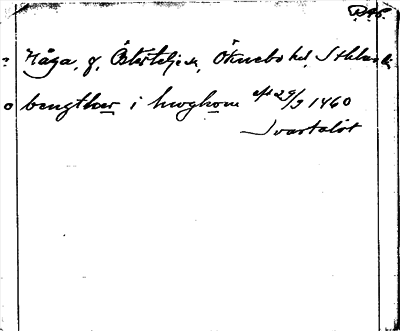 Håga, g. Östertelje sn, Öknebo hd, Sthlms l.
bengthær i hwghom eft 29/9 1460
Svartalöt